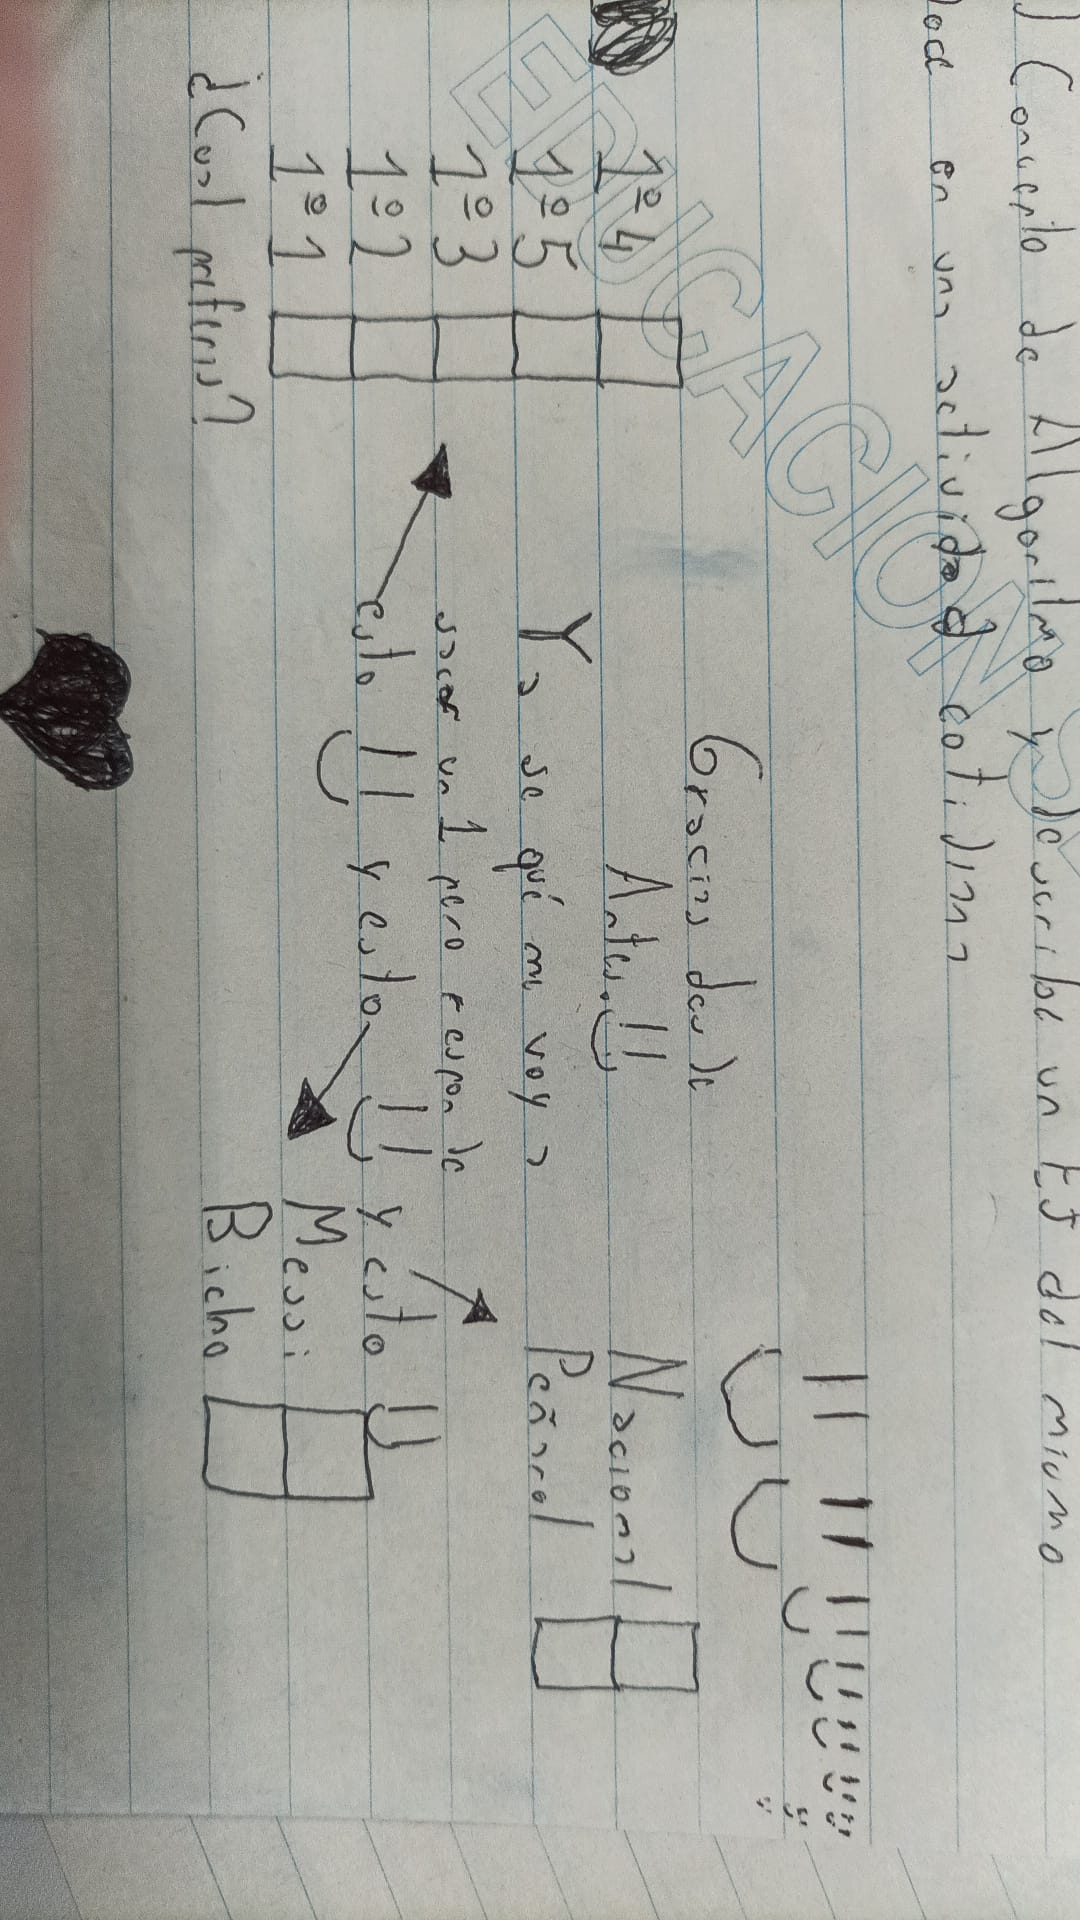 ) Concepto de Algoritmo y describe un EJ del mismo
en una actividad cotidiana
EDUCACION SE
Gracias desde
Antes.
1º4
1º5
1º3
1º2
1º1
¿Cual preferis?
Ya se qué me voy a
sacar un 1 pero responde
esto y esto y esto
Nacional
Peñarol
Messi
Bicho